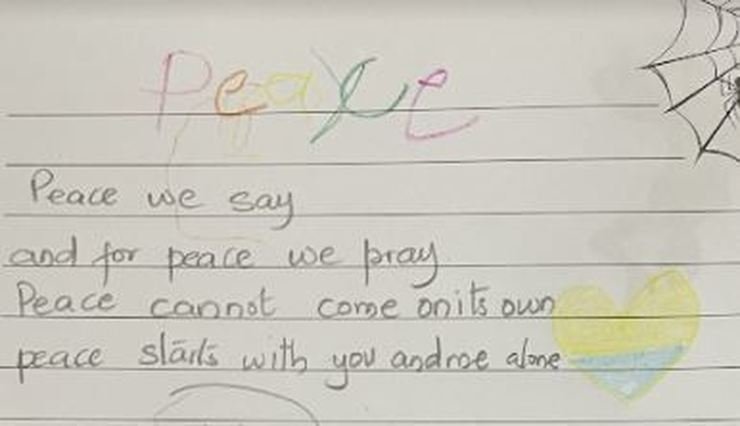 Peace
Peace we say
and for peace we pray
Peace cannot come on its own
peace starts with you and me alone